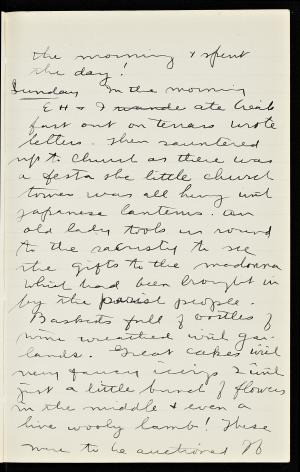 the morning & spent
the day!
Sunday In the morning
E H & I ate break
fast out on terrace wrote
letters. Then sauntered
up to church as there was
a festa the little church
tower was all hung with
japanese lanterns. An
old lady took us round
to the sacristy to see
the gifts to the madonna
which had been brought in
by the parish people.
Baskets full of bottles of
wine wreathed with gar-
lands. Great cakes with
very fancy icings & with
just a little bunch of flowers
in the middle & even a
live wooly lamb! These
were to be auctioned